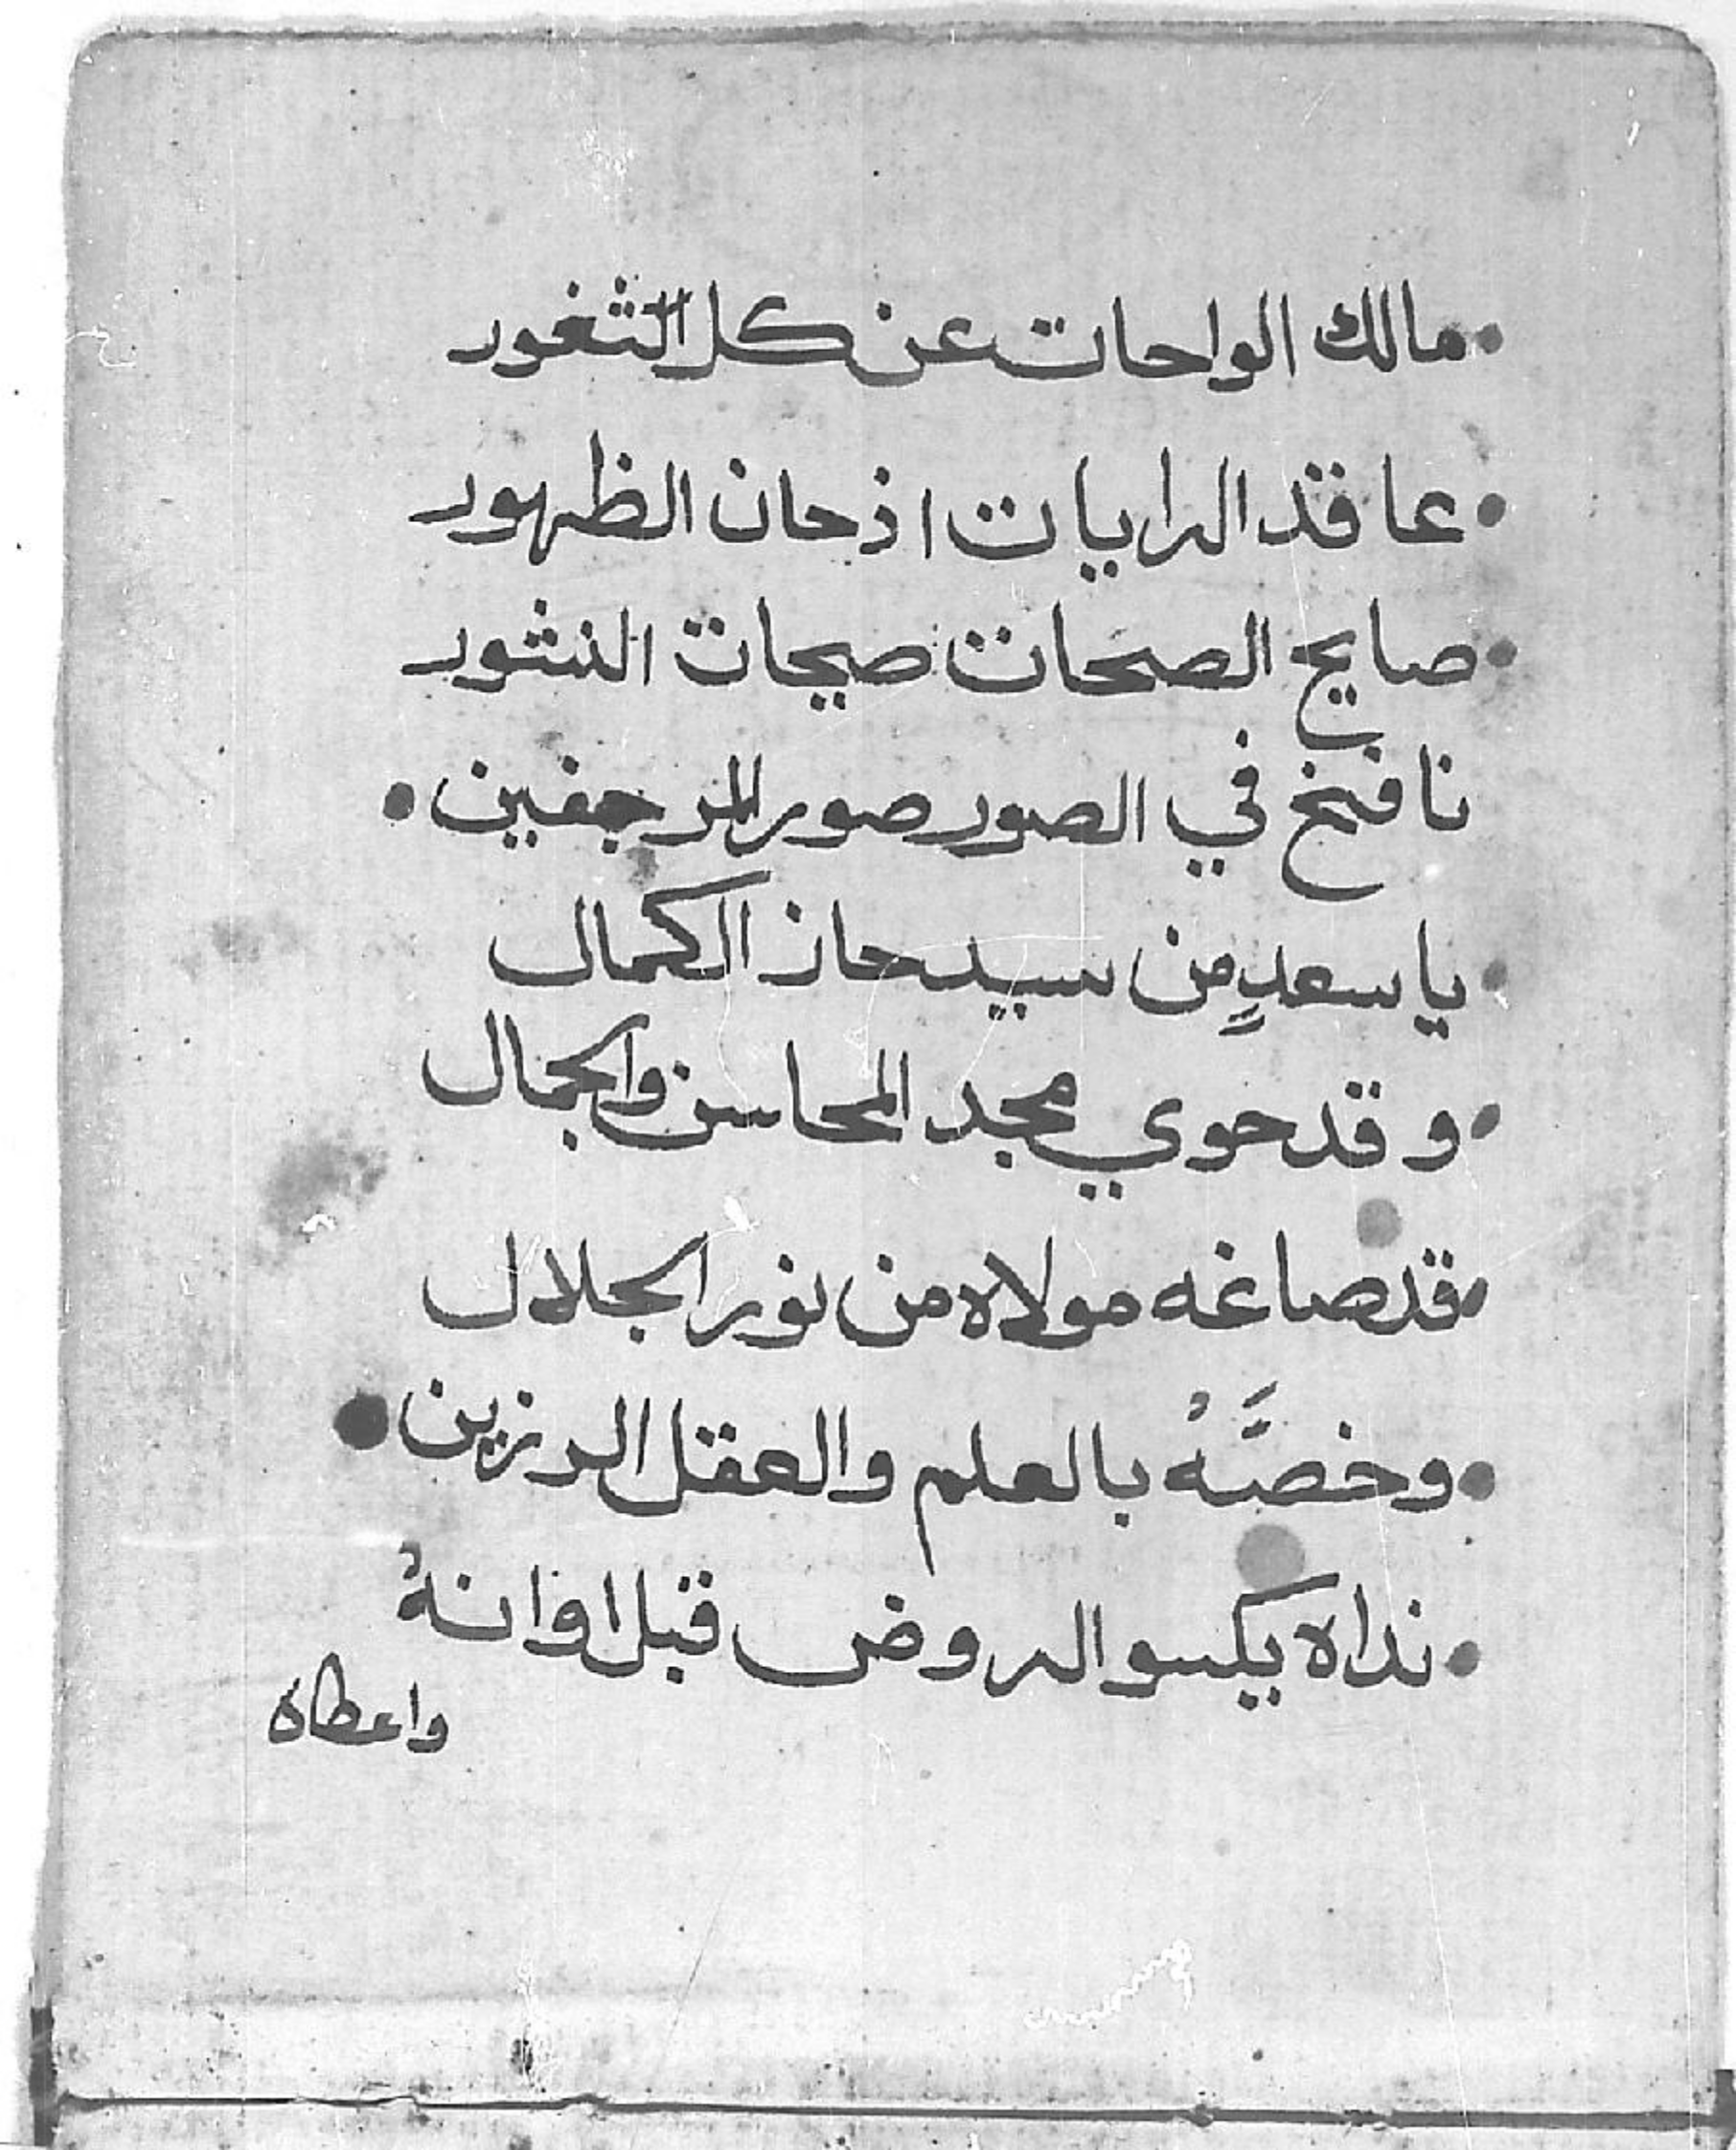 • مالك الواحات عن كل الثغور
• عاقد الرايات اذ حان الظهور
• صايح الصحات صيحات النشور
نافخ في الصور صور المرجفين •
• يا سعدٍ من سيد حاز الكمال
• وقد حوي مجد المحاسن والجمال
• قد صاغه مولاه من نور الجلال
• وخصَّهُ بالعلم والعقل الرزين •
• نداه يكسو الروض قبل اوانهُ
واعطاه